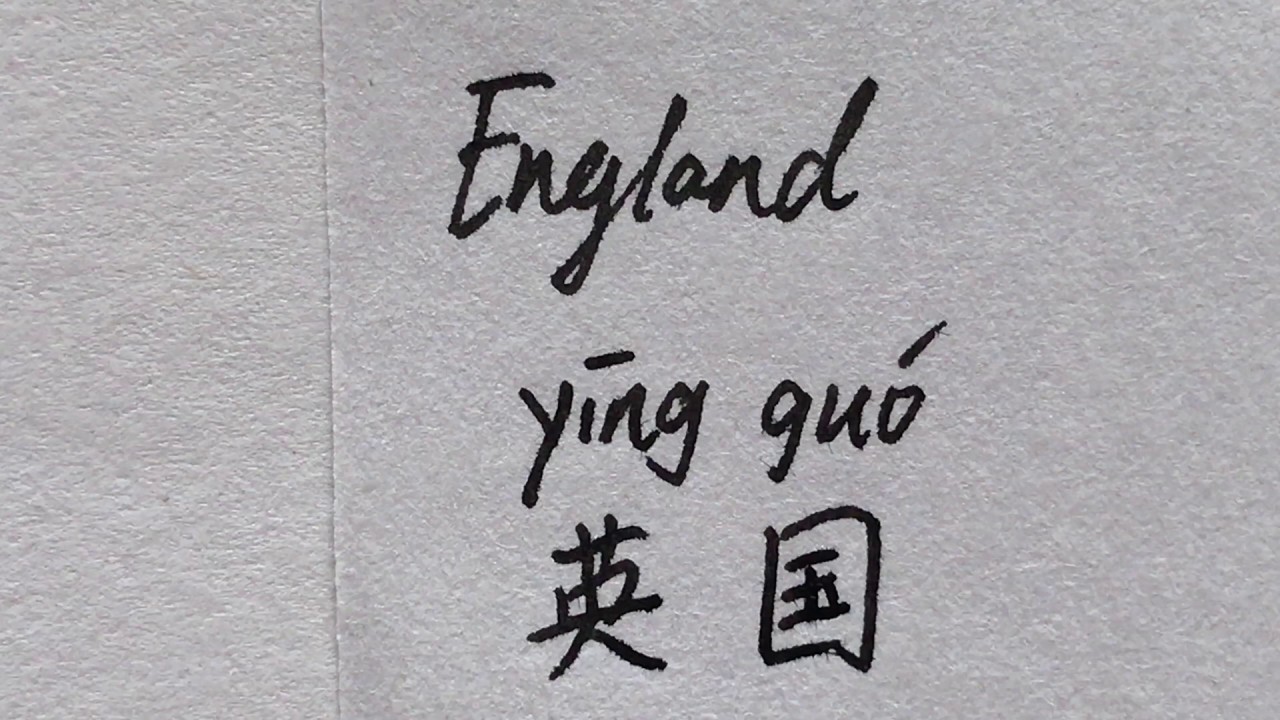 England
yīng guó
英国